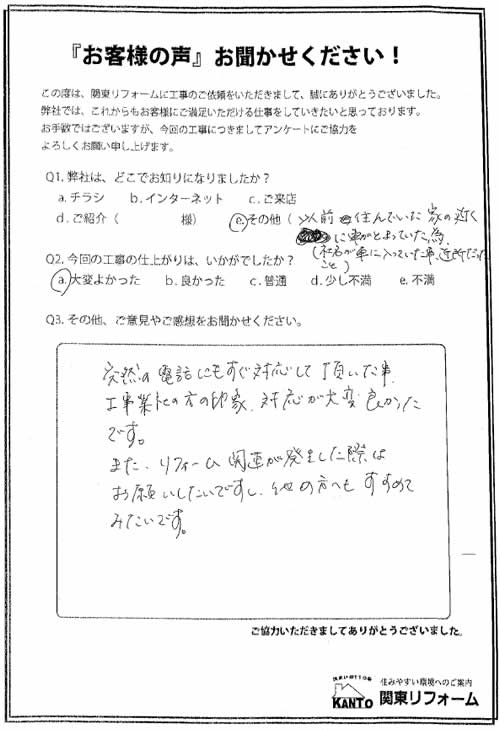 『お客様の声』お聞かせください！
この度は、関東リフォームに工事のご依頼をいただきまして、誠にありがとうございました。
弊社では、これからもお客様にご満足いただける仕事をしていきたいと思っております。
お手数ではございますが、今回の工事につきましてアンケートにご協力を
よろしくお願い申し上げます。
Q1. 弊社は、どこでお知りになりましたか？
a. チラシ b. インターネット c. ご来店
d. ご紹介（ 様） e. その他（以前 住んでいた 家の近く
に車がとまっていた為
（社名が車に入っていた事、近所だった
こと）
Q2. 今回の工事の仕上がりは、いかがでしたか？
a. 大変よかった b. 良かった c. 普通 d. 少し不満 e. 不満
Q3. その他、ご意見やご感想をお聞かせください。
突然の電話にもすぐ対応して頂いた事、
工事業社の方の印象、対応が大変良かった
です。
また、リフォーム関連が発生した際は
お願いしたいですし、他の方へも すすめて
みたいです。
ご協力いただきましてありがとうございました。
住まいの110番
KANTO
住みやすい環境へのご案内
関東リフォーム